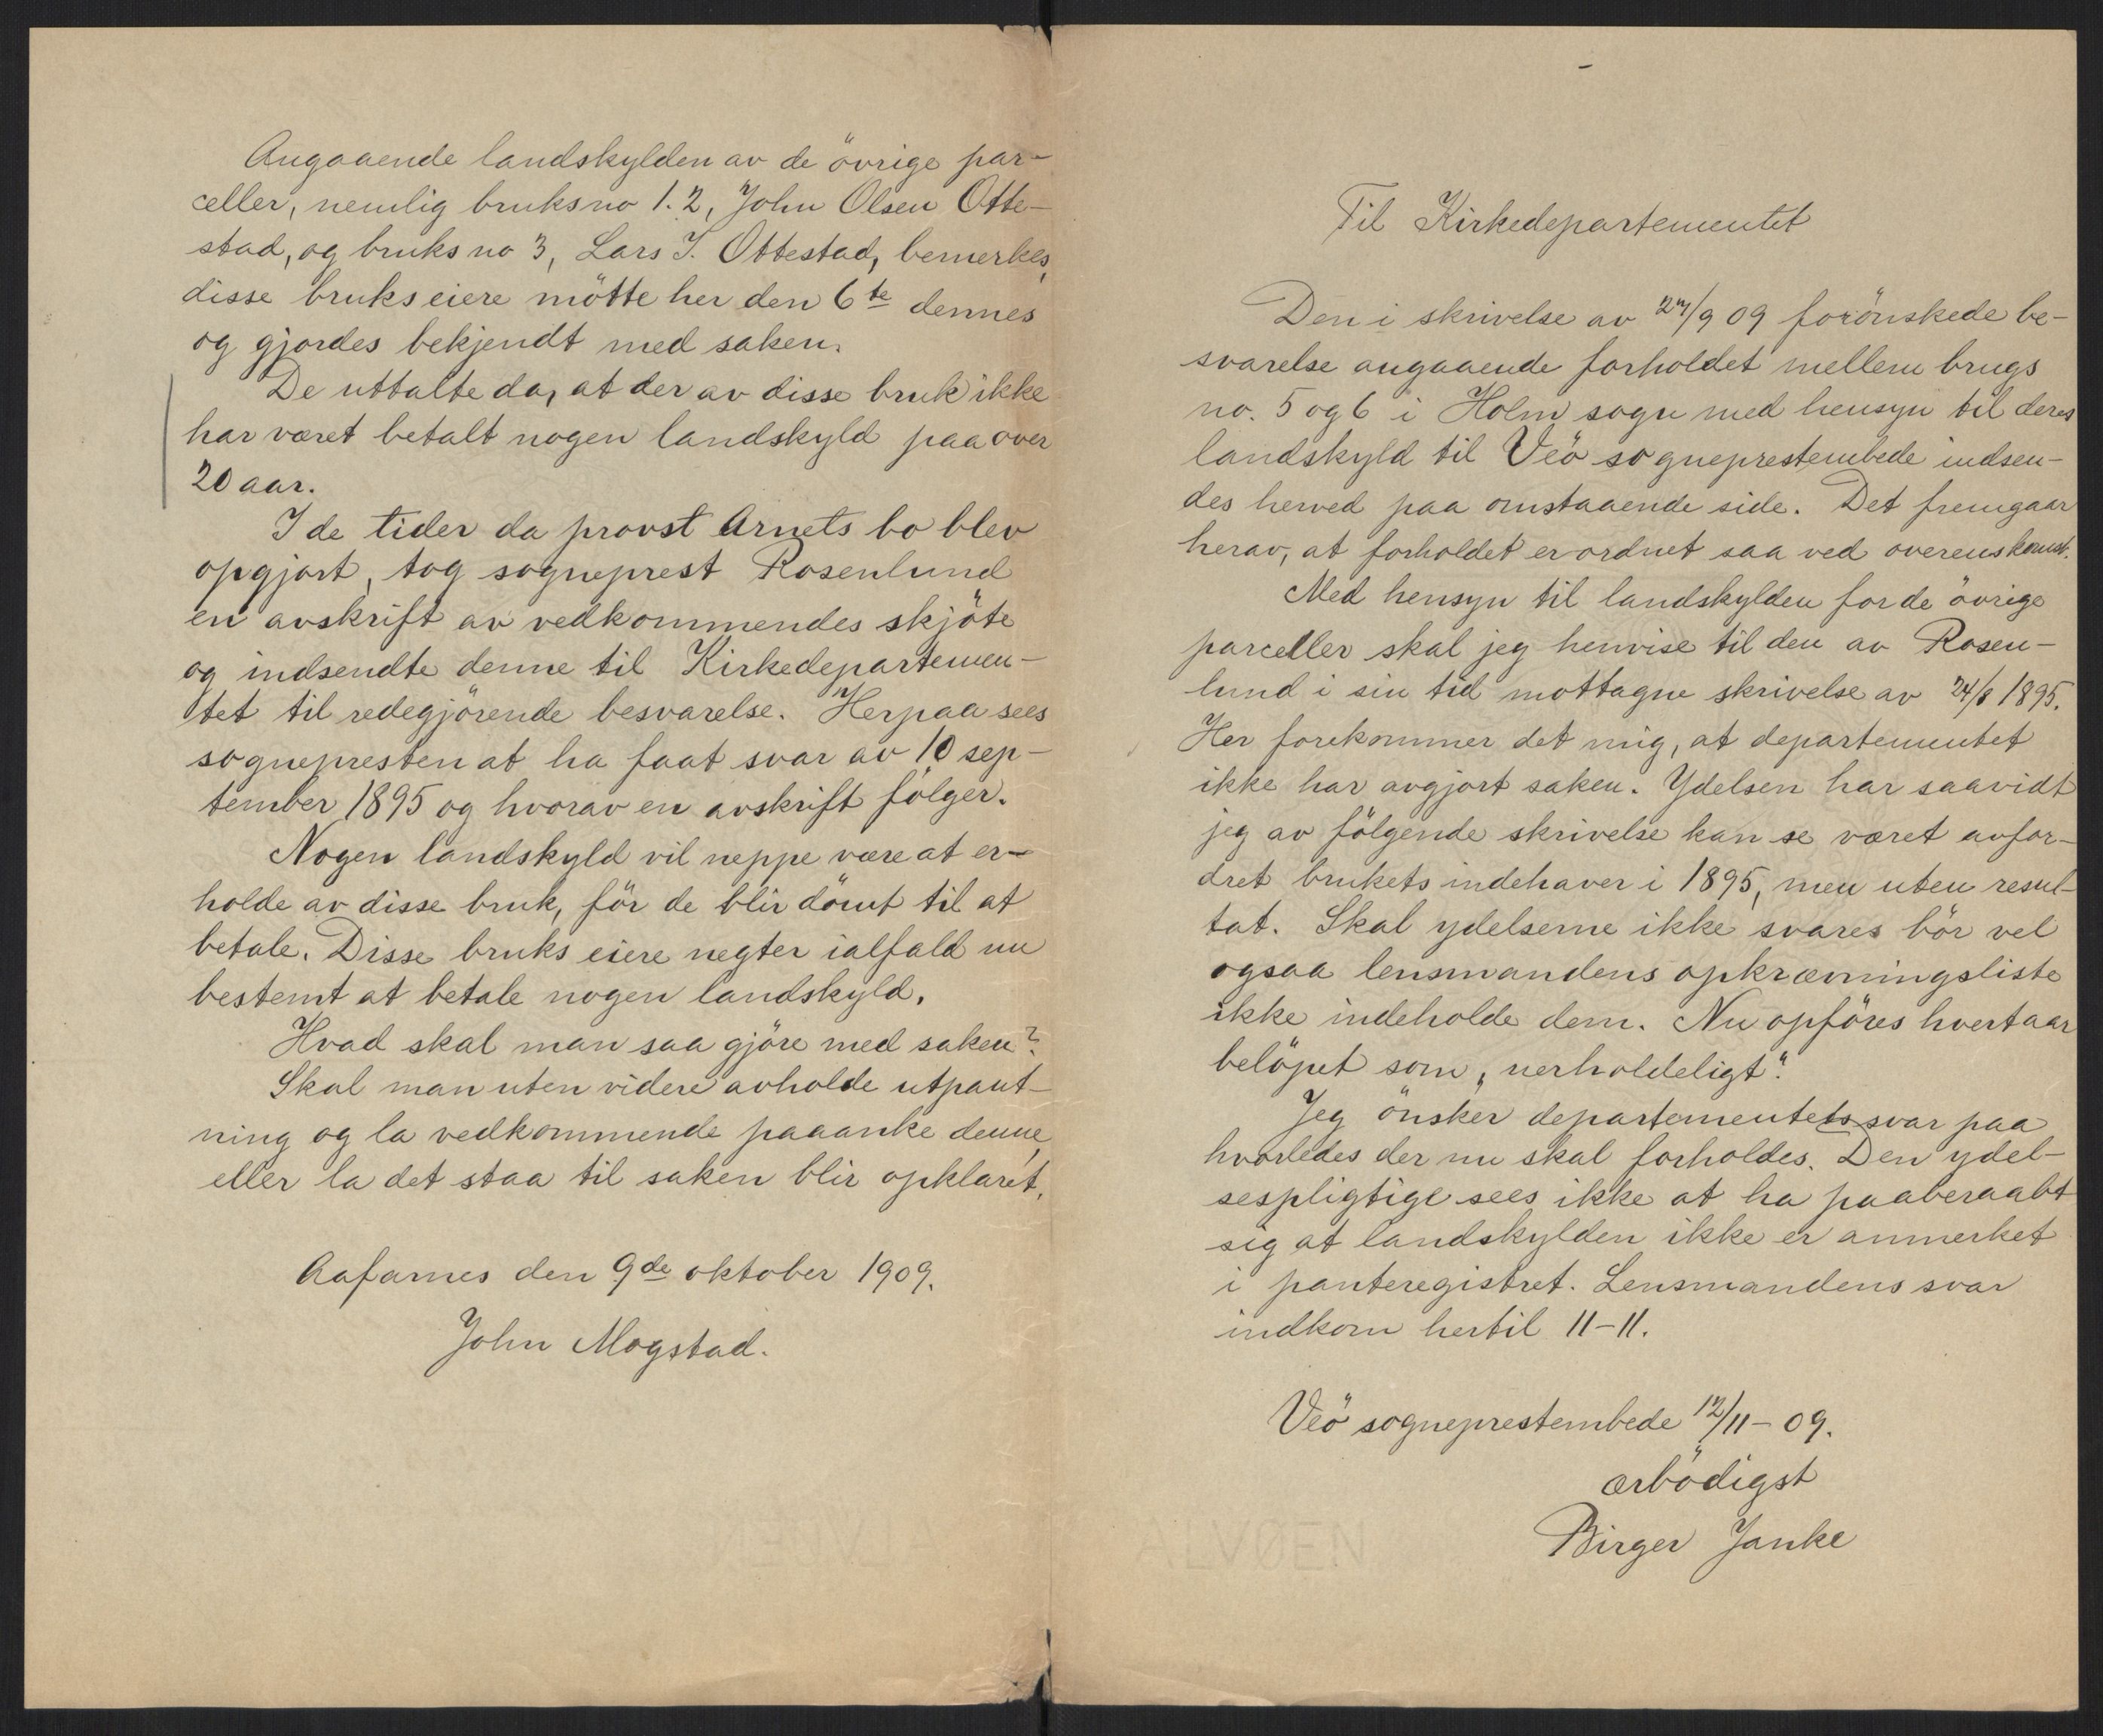 Angaaende landskylden av de övrige par-
celler, nemlig bruksno 1. 2, John Olsen Otte-
stad, og bruks no 3, Lars J. Ottestad, bemerkes,
disse brukseiere mötte her den 6te dennes
og gjordes bekjendt med saken.
De uttalte da, at der av disse bruk ikke
har været betalt nogen landskyld paa over
20 aar.
I de tider da provst Arnets bo blev
opgjort, tog sogneprest Rosenlund
en avskrift av vedkommendes skjöte
og indsendte denne til Kirkedepartemen-
tet til redegjörende besvarelse. Herpaa sees
sognepresten at ha faat svar av 10 sep-
tember 1895 og hvorav en avskrift fölger.
Nogen landskyld vil neppe være at er-
holde av disse bruk, för de blir dömt til at
betale. Disse bruks eiere negter ialfald nu
bestemt at betale nogen landskyld.
Hvad skal man saa gjöre med saken?
Skal man uten videre avholde utpant-
ning og la vedkommende paaanke denne,
eller la det staa til saken blir opklaret.
Aafarnes den 9de oktober 1909.
John Mogstad.
Til Kirkedepartementet
Den i skrivelse av 27/9 09 forönskede be-
svarelse angaaende forholdet mellem brugs
no. 5 og 6 i Holm sogn med hensyn til deres
landskyld til Veö sogneprestembede indsen-
des herved paa omstaaende side. Det fremgaar
herav, at forholdet er ordnet saa ved overenskomst.
Med hensyn til landskylden for de övrige
parceller skal jeg henvise til den av Rosen-
lund i sin tid mottagne skrivelse av 24/8 1895.
Her forekommer det mig, at departementet
ikke har avgjort saken. Ydelsen har saavidt
jeg av fölgende skrivelse kan se været avfor-
dret brukets indehaver i 1895, men uten resul-
tat. Skal ydelserne ikke svares bör vel
ogsaa lensmandens opkrævningsliste
ikke indeholde dem. Nu opföres hvert aar
belöpet som „uerholdeligt".
Jeg önsker departementets svar paa
hvorledes der nu skal forholdes. Den ydel-
sespligtige sees ikke at ha paaberaabt
sig at landskylden ikke er anmerket
i panteregistret. Lensmandens svar
indkom hertil 11-11.
Veö sogneprestembede 12/11-09.
ærbödigst
Birger Janke
ALVØEN